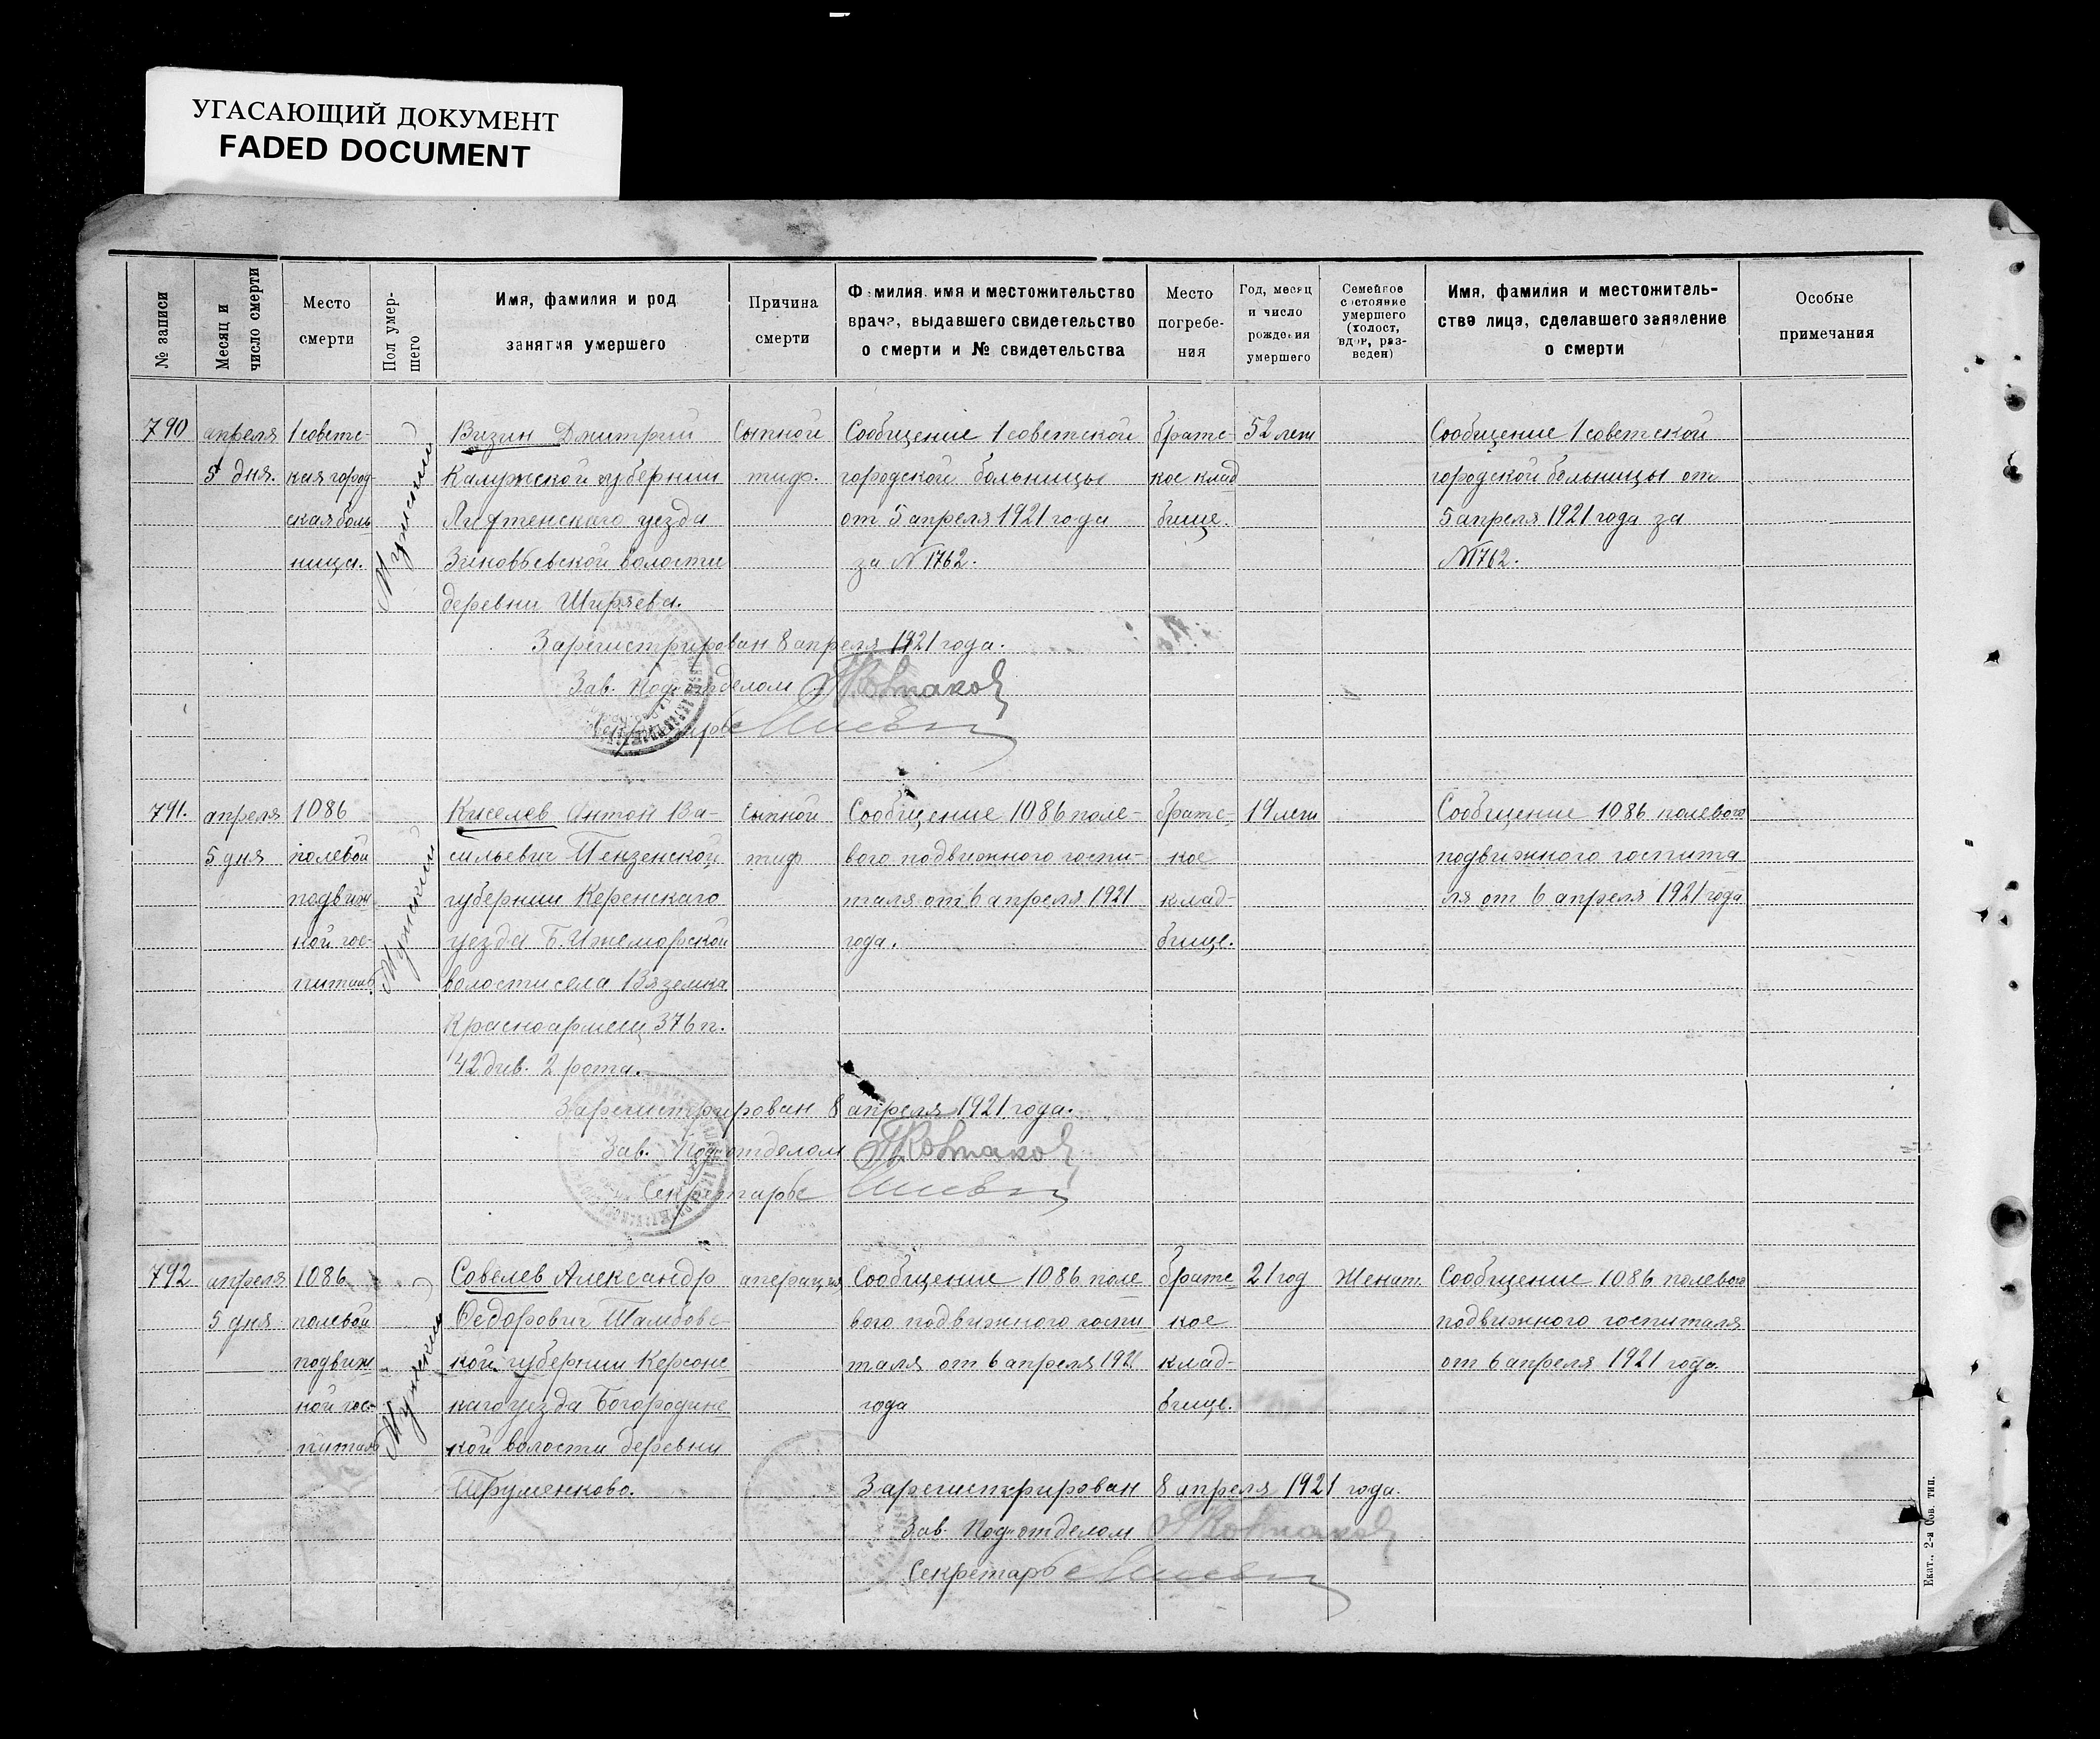 УГАСАЮЩИЙ ДОКУМЕНТ
FADED DOCUMENT
№ записи
Месяц и
число смерти
Место
смерти
Пол умер-
шего
Имя, фамилия и род
занятия умершего
Причина
смерти
Фамилия, имя и местожительство
врача, выдавшего свидетельство
о смерти и № свидетельства
Место
погребе-
ния
Год, месяц
и число
рождения
умершего
Семейное
состояние
умершего
(холост,
вдов, раз-
веден)
Имя, фамилия и местожитель-
ство лица, сделавшего заявление
о смерти
Особые
примечания
790
апреля
5 дня.
1 советс-
кая город-
ская боль
ница.
Мужской
Визин Дмитрий
Калужской губернии
уезда
Зиновьевской волости
деревни Ширяева.
Сыпной
тиф.
Сообщение 1 советской
городской больницы
от 5 апреля 1921 года
за N 1762.
братс-
кое клад
бище.
52 лет
Сообщение 1 советской
городской больницы от
5 апреля 1921 года за
N 1762.
Зарегистрирован 8 апреля 1921 года.
Зав. Подотделом
Секретарь
791.
апреля
5 дня
1086
полевой
подвиж
ной гос-
питаль
Мужской
Киселев Антон Ва-
сильевич Пензенской
губернии Керенскаго
уезда Б. Ижеморской
волости села Вяземка
Красноармеец 376 п.
42 див. 2 рота.
Сыпной
тиф
Сообщение 1086 поле-
вого подвижного госпи-
таля от 6 апреля 1921
года.
братс-
кое
клад-
бище.
19 лет
Сообщение 1086 полевого
подвижного госпита
ля от 6 апреля 1921 года
Зарегистрирован 8 апреля 1921 года.
Зав. Подотделом
Секретарь
792
апреля
5 дня
1086
полевой
подвиж
ной гос-
питаль
Мужской
Савелев Александр
Федорович Тамбовс-
кой губернии Керсонс
каго уезда Богородинс
кой волости деревни
операция
Сообщение 1086 поле
вого подвижного госпи
таля от 6 апреля 1921
года
братс
кое
клад-
бище.
21 год
Женат.
Сообщение 1086 полевого
подвижного госпиталя
от 6 апреля 1921 года.
Зарегистрирован 8 апреля 1921 года.
Зав. Подотделом
Секретарь
Екат., 2-я Сов. тип.